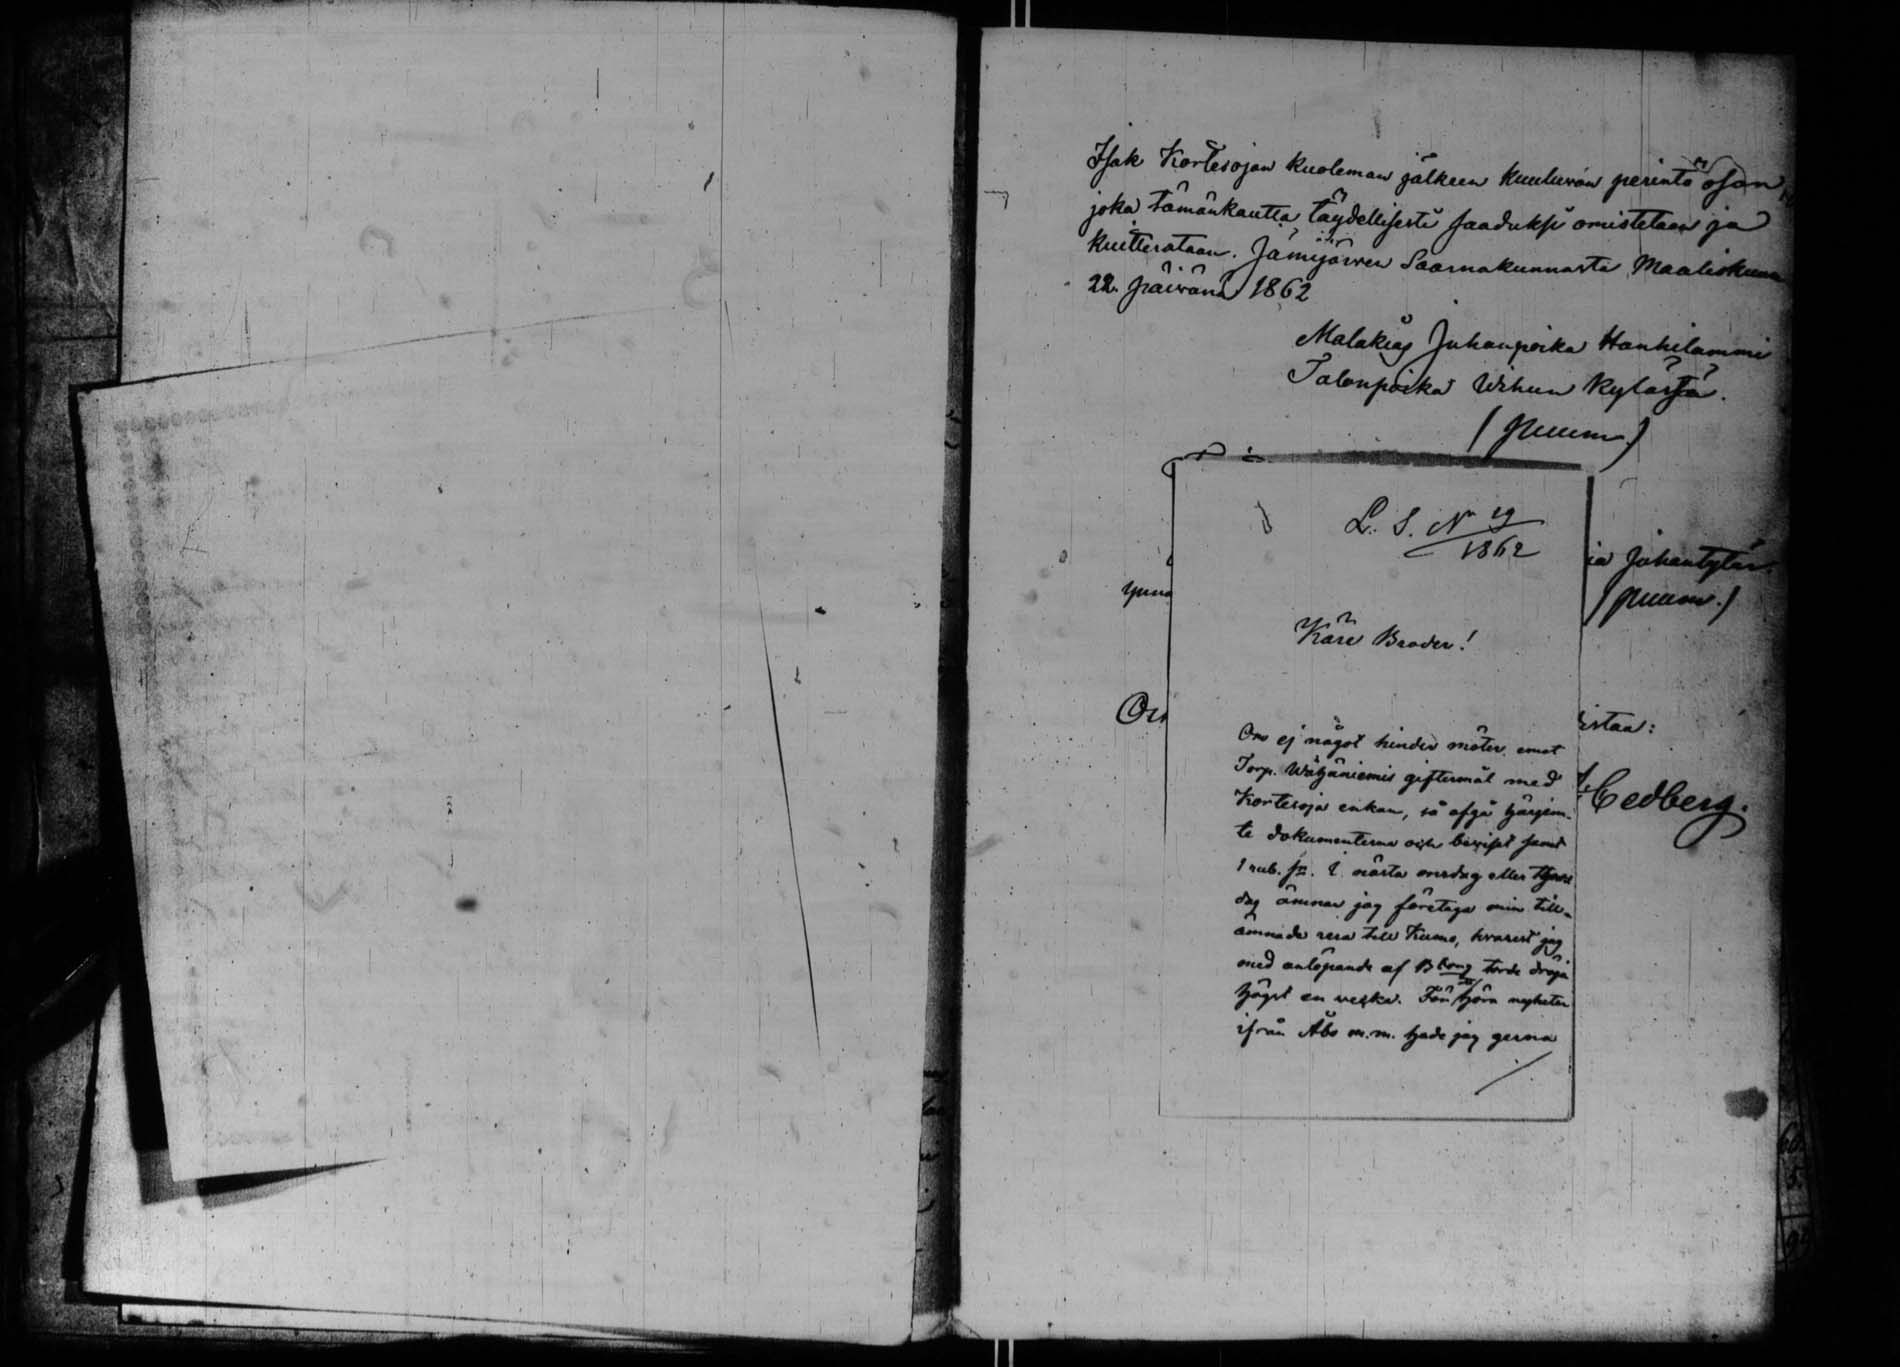 Isak Kortesojan kuoleman jälkeen kuuluvan perintö osan
joka tämänkautta täydellisesti saaduksi omistetaan ja
kuitterataan. Jämijärven Saarnakunnasta Maaliskuun
22. päivänä 1862
Malakias Juhanpoika Hanhilammi
Talonpoika Wihun Kylästä.
(puum.)
L. S. No 19
1862
ia Juhantytär.
(puum.)
Käre Broder!
istaa:
Om ej något hinder möter emot
Torp. Wähäniemis giftermål med
Kortesoja enkan, så afgå härjem-
te dokumenterna och beviset samt
1 rub. sr. I nästa onsdag eller
dag ämnar jag företaga min till-
ämnade resa till Kumo, hvarest jag
med anlöpande af torde dröja
högst en vecka. Förr höra nyheter
ifrån Åbo m.m. hade jag gerna
Cedberg.